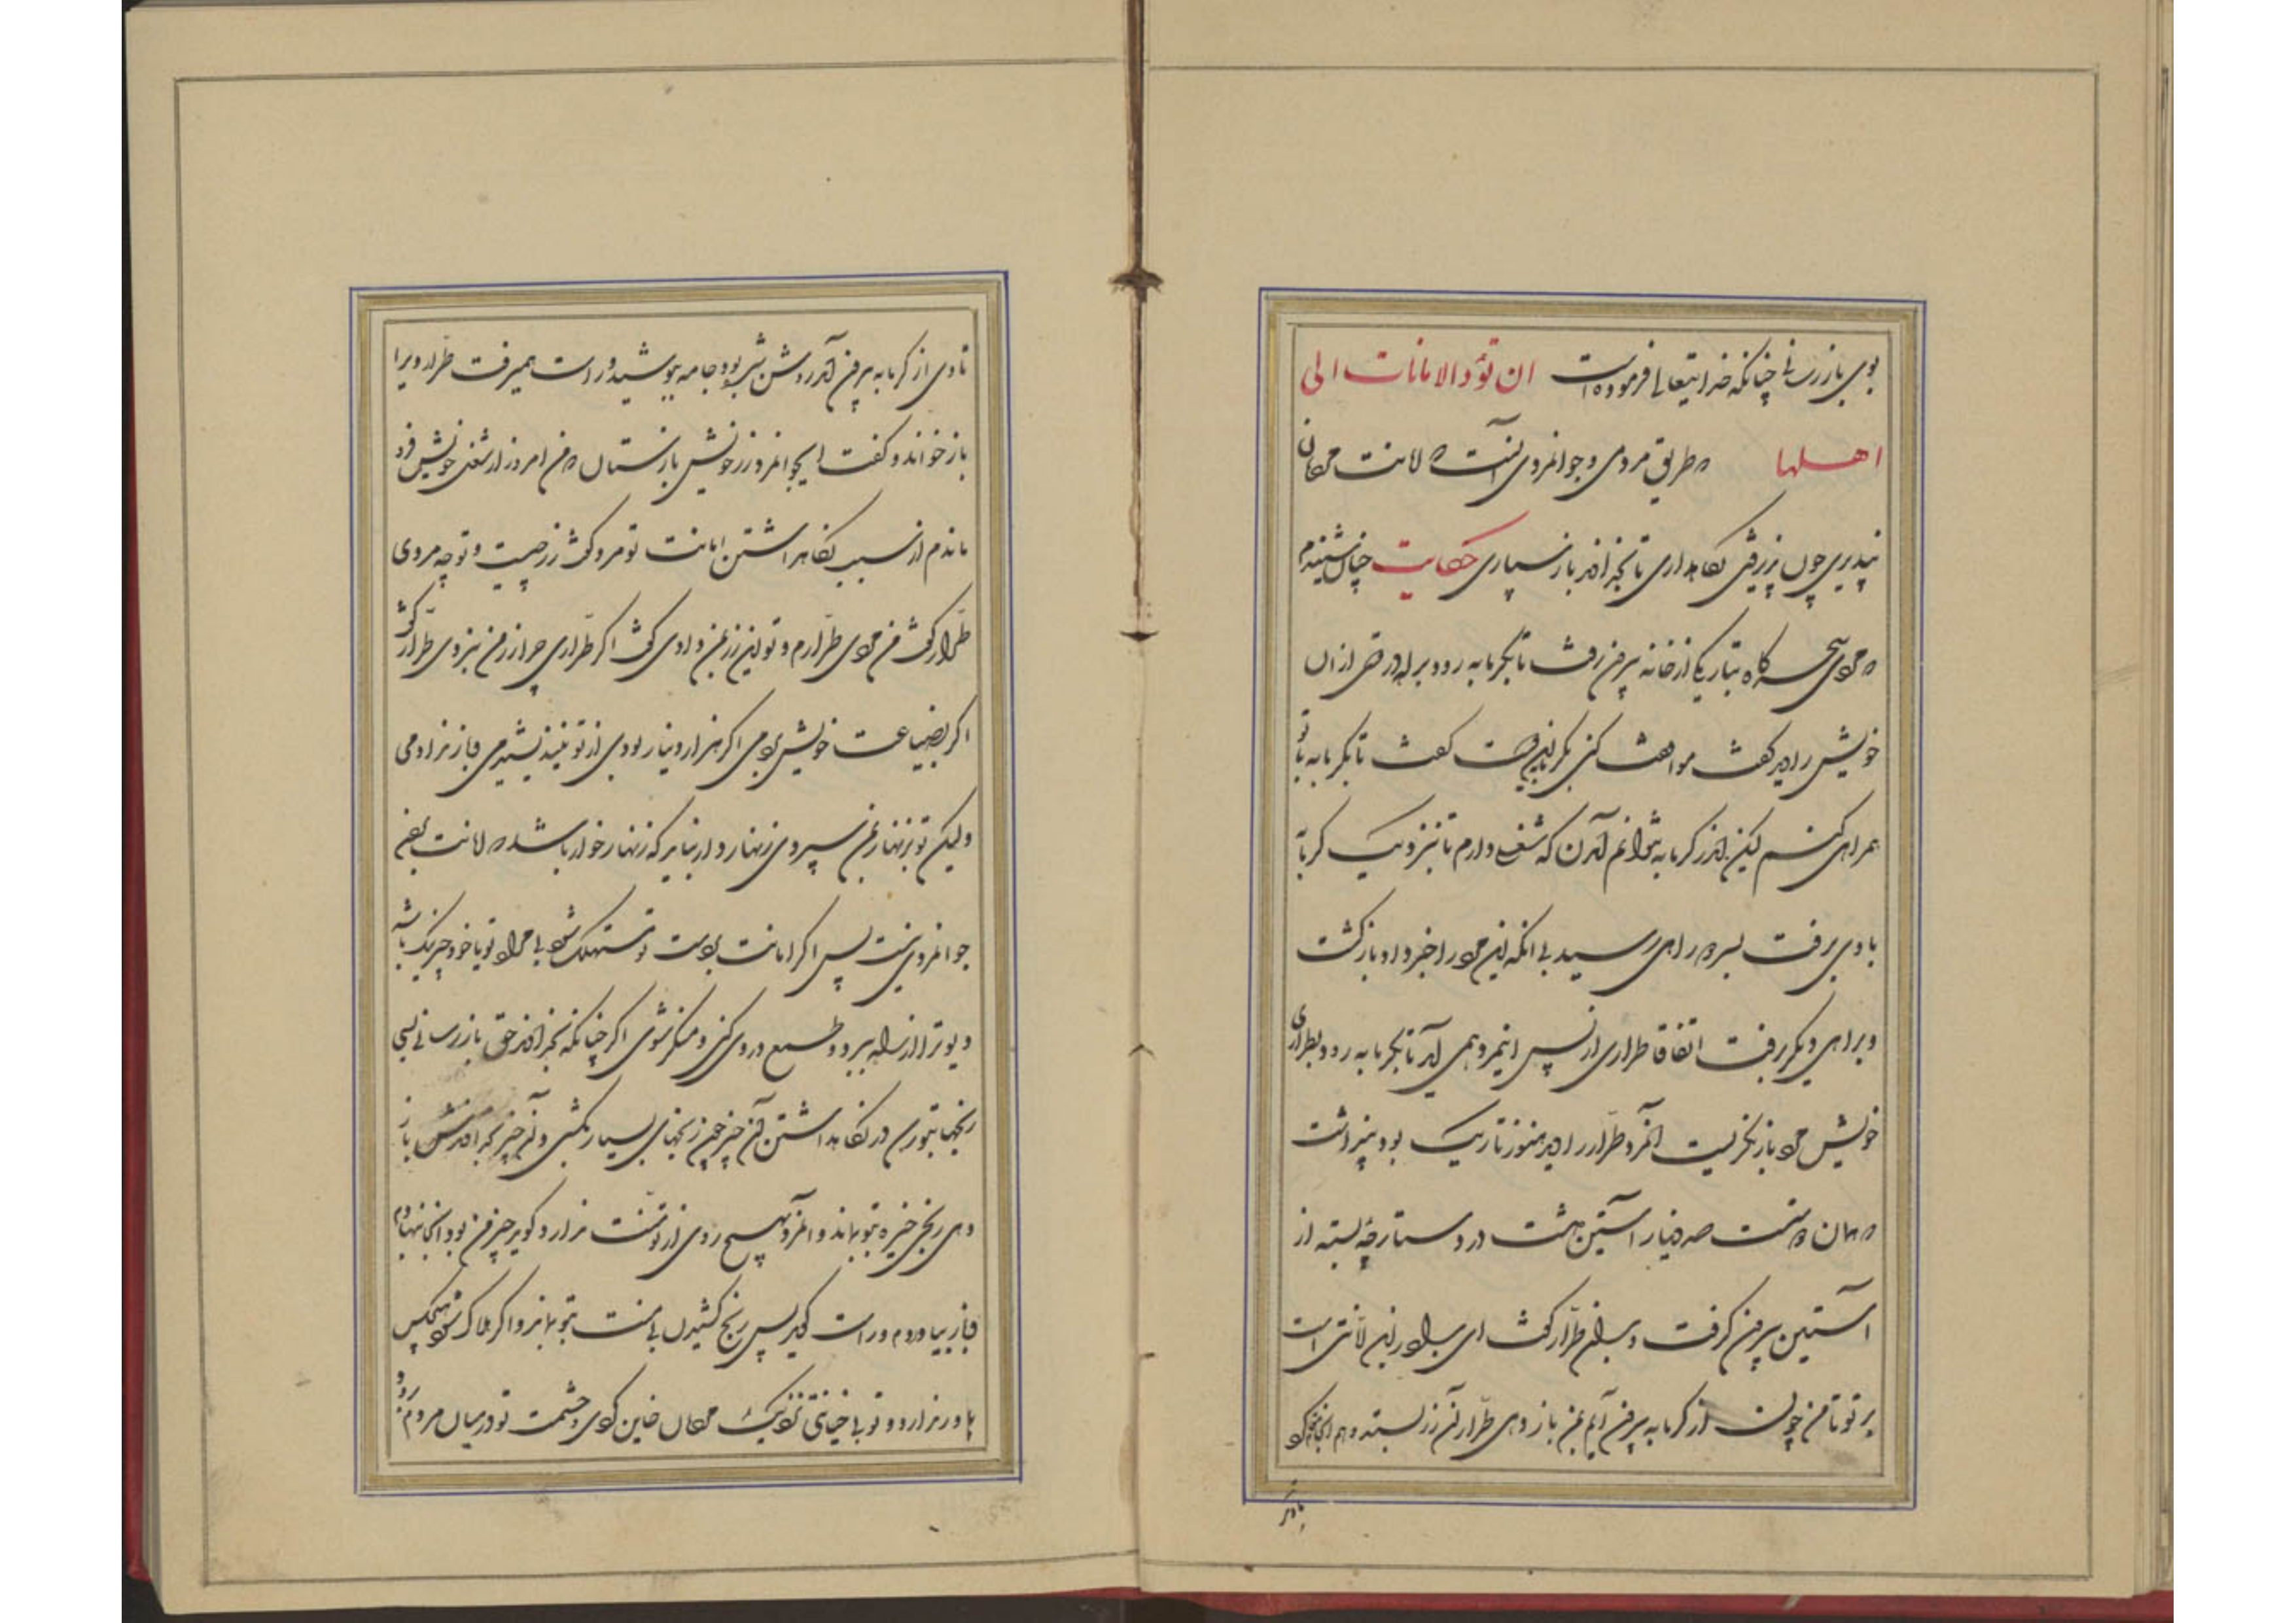 بوی باز رسانی چنانکه خدایتعالی فرموده است ان تؤدوالامانات الی
اهلها که طریق مردمی و جوانمردی آنست که امانت مردمان
نپذیری چون پذیرفتی نگاهداری تا بخداوند باز سپاری حکایت چنان شنیدم
که مردی سحرگاه بتاریکی از خانه بیرون رفت تا بگرمابه رود براه در دوستی از آن
خویش را دید گفت موافقت کنی بگرمابه رفت گفت تا بگرمابه با تو
همراهی کنم لیکن اندر گرمابه نتوانم آمدن که شغلی دارم تا بنزدیک گرمابه
با وی برفت بسر دو راهی رسید بی آنکه این مرد را خبر داد بازگشت
و براهی دیگر برفت اتفاقا طراری از پس اینمرد همی آمد تا بگرمابه رود بطراری
خویش مرد باز نگریست آنمرد طرار را دید هنوز تاریک بود پنداشت
که همان دوستست صد دینار در آستین داشت در دستارچه بسته از
آستین بیرون گرفت و بدان طرار گفت ای برادر این امانتی است
بر تو تا من چون از گرمابه بیرون آیم بمن باز دهی طرار آن زر بستد و هم آنجا مقام کرد
تا وی
تا وی از گرمابه بیرون آمد روشن شده بود جامه بپوشید و راست همیرفت طرار ویرا
باز خواند و گفت ایجوانمرد زر خویش باز ستان که من امروز از شغل خویش فرو
ماندم از سبب نگاهداشتن امانت تو مرد گفت زر چیست و تو چه مردی
طرار گفت من مردی طرارم و تو این زر بمن دادی گفت اگر طراری چرا زر من نبردی طرار گفت
اگر بصناعت خویش بردمی اگر هزار دینار بودی از تو نیندیشیدمی و باز ندادمی
ولیکن تو بزنهار بمن سپردی زنهاردار نباید که زنهارخوار باشد که امانت بردن
جوانمردی نیست پس اگر امانت بدست تو مستهلک شود بی مراد تو یا خود چیزی نیک باشد
و دیو ترا از راه ببرد و طمع در وی کنی و منکر شوی اگر چنانکه بخداوند حق باز رسانی بسی
رنجها بتو رسد در نگاهداشتن آن چیز چون رنجهای بسیار بکشی و آن چیز بخداوندش باز
دهی رنج خیره بتو بماند و آنمرد بهیچ روی از تو منت ندارد گوید چیز من بود آنجا نهادم
و باز بیاوردم و راست گوید پس رنج کشیدن بی منت بتو بماند و اگر هلاک شود هیچکس
باور ندارد و تو بی خیانتی نزدیک مردمان خاین گردی و حشمت تو در میان مردم برود